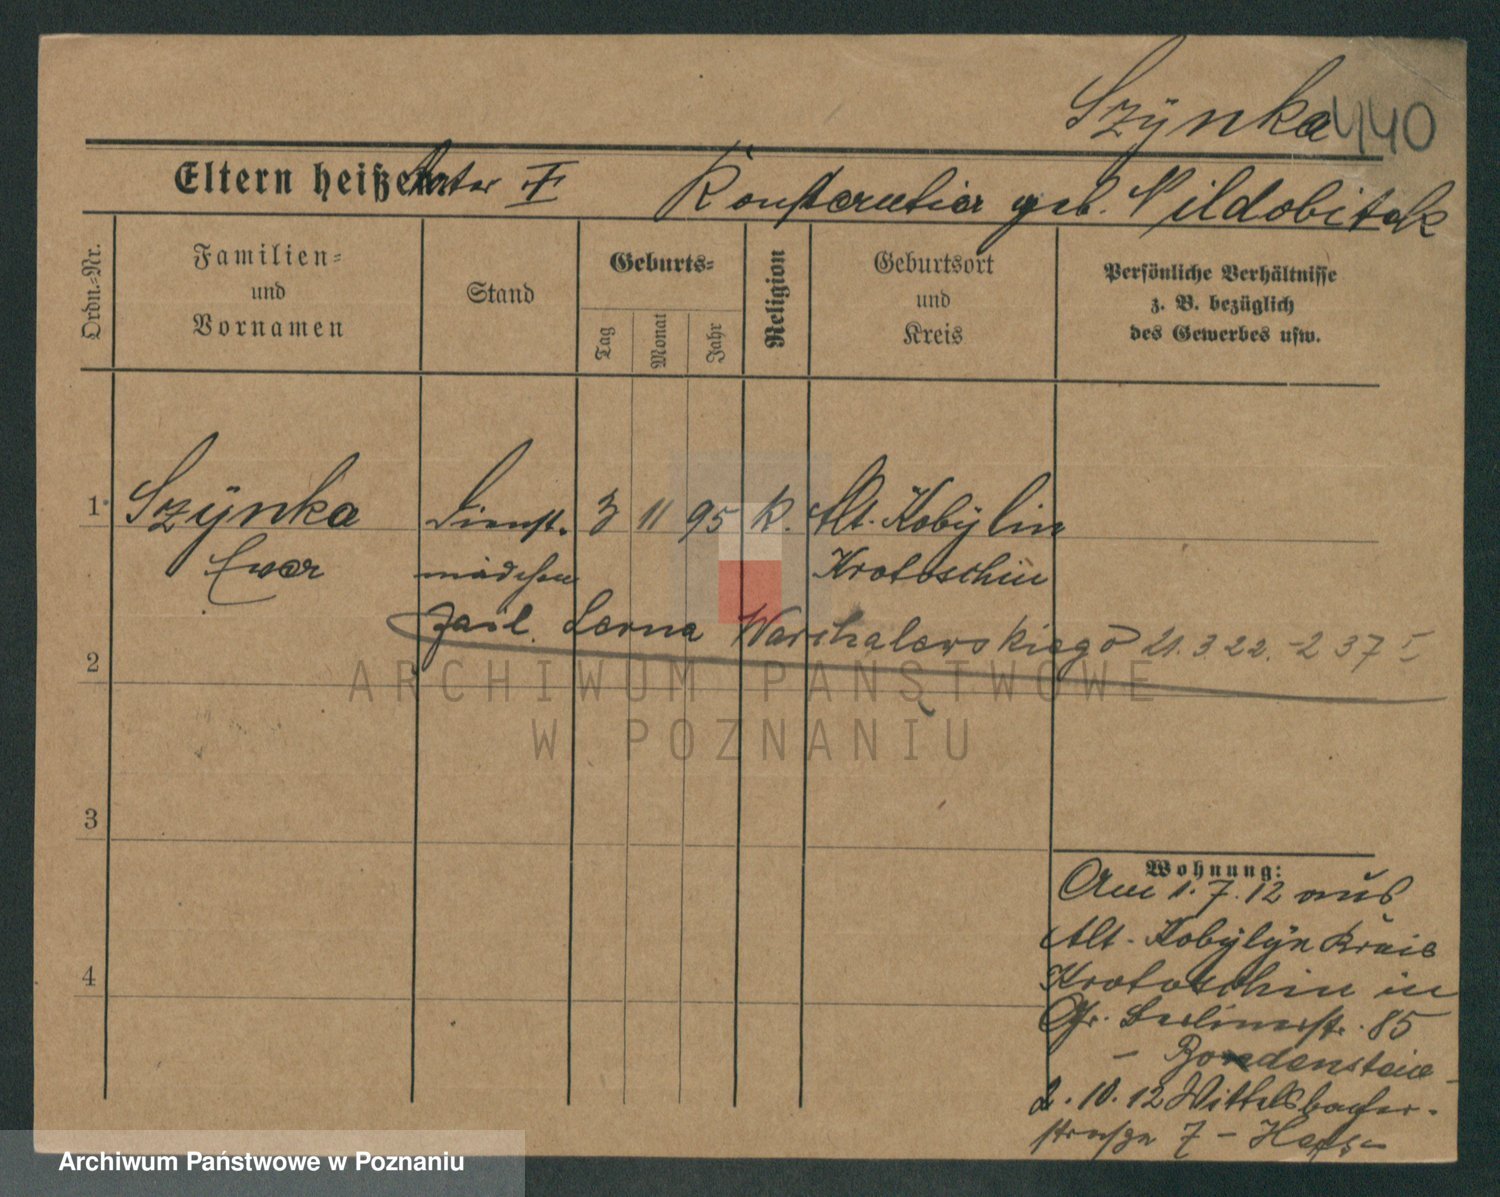 Szÿnka
440
Eltern heißen Vater †
Konstantia geb. Nildobitek
Ordn.-Nr.
Familien-
und
Vornamen
Stand
Geburts-
Tag
Monat
Jahr
Religion
Geburtsort
und
Kreis
Persönliche Verhältnisse
z. B. bezüglich
des Gewerbes usw.
1. Szÿnka Dienst- 3 11 95 k. Alt-Kobÿlin
Eva mädchen Krotoschin
Warchalewskiego 21.3.22. - 237 I
2
3
4
Wohnung:
Am 1.7.12 aus
Alt-Kobÿlÿn Kreis
Krotoschin in
Gr. Berlinerstr. 85
2.10.12 Wittelsbacher-
straße 7 -
ARCHIWUM PAŃSTWOWE
W POZNANIU
Archiwum Państwowe w Poznaniu